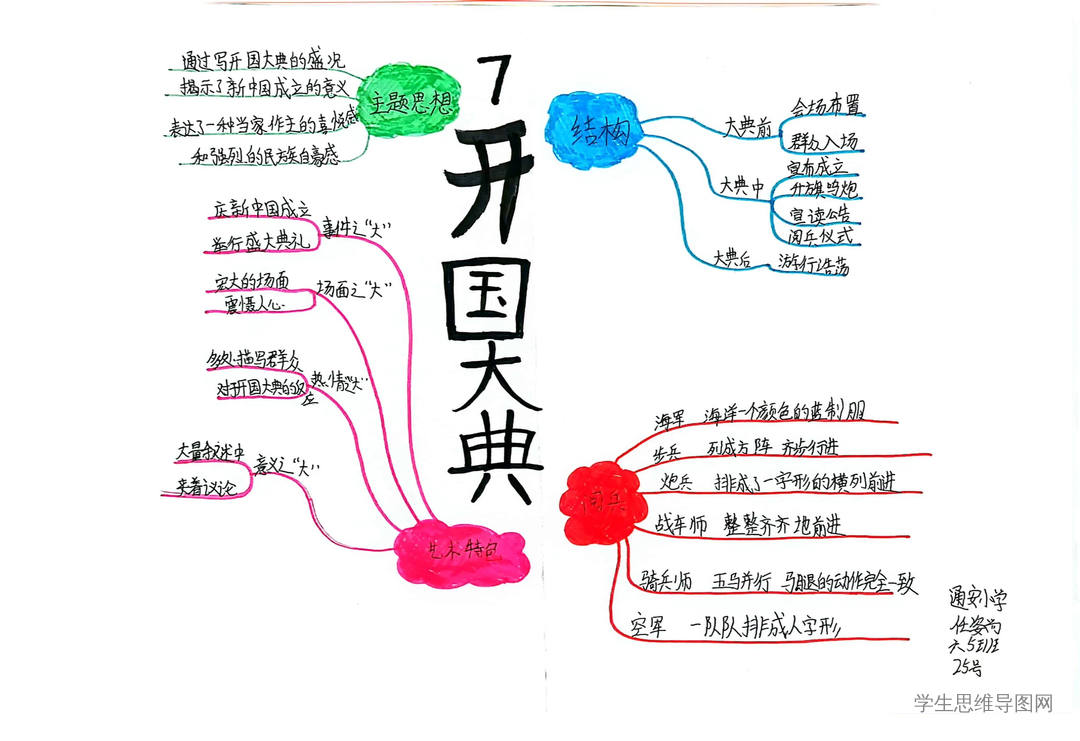 7
开
国
大
典
主题思想
通过写开国大典的盛况
揭示了新中国成立的意义
表达了一种当家作主的喜悦感
和强烈的民族自豪感
结构
大典前
会场布置
群众入场
大典中
宣布成立
升旗鸣炮
宣读公告
阅兵仪式
大典后
游行浩荡
艺术特色
事件之“大”
庆新中国成立
举行盛大典礼
场面之“大”
宏大的场面
震慑人心
热情之“大”
多处描写群众
对开国大典的反
应
意义之“大”
大量叙述中
夹着议论
阅兵
海军 海洋一个颜色的蓝制服
步兵 列成方阵 齐步行进
炮兵 排成了一字形的横列前进
战车师 整整齐齐地前进
骑兵师 五马并行 马腿的动作完全一致
空军 一队队排成人字形
通安小学
任姿
六5班
25号
学生思维导图网